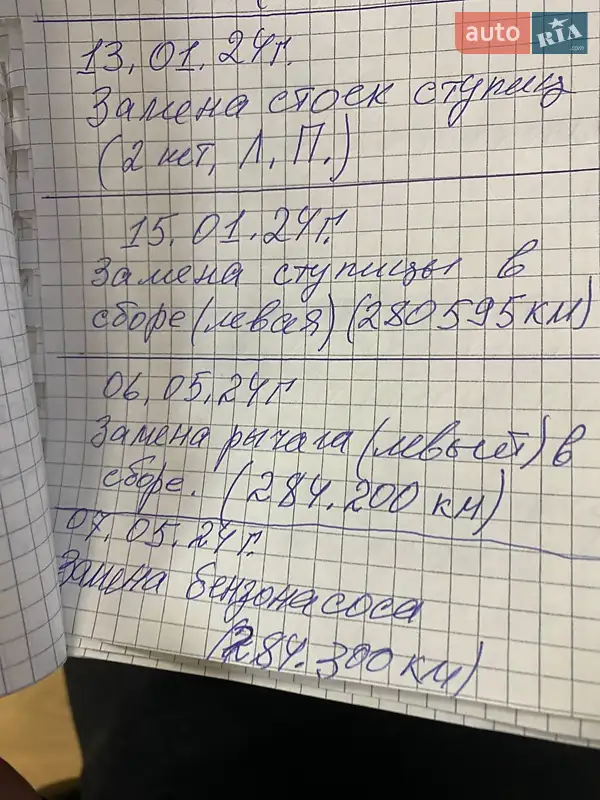 auto RIA .com
13.01.24г.
Замена стоек ступиц
(2 шт, Л. П.)
15.01.24г.
Замена ступицы в
сборе (левая) (280595 км)
06.05.24г
Замена рычага (левый) в
сборе. (284.200 км)
07.05.24г.
Замена бензонасоса
(284.300 км)